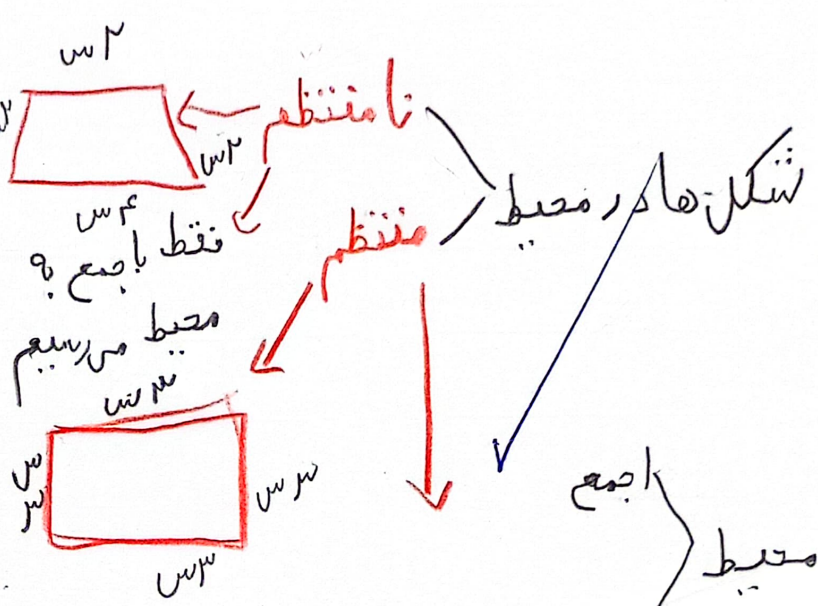 شکل‌ها در محیط
نا منتظم
منتظم
۲ س
۲س
۴ س
فقط با جمع به
محیط می‌رسیم
۳ س
۳ س
۳ س
۳س
محیط
با جمع